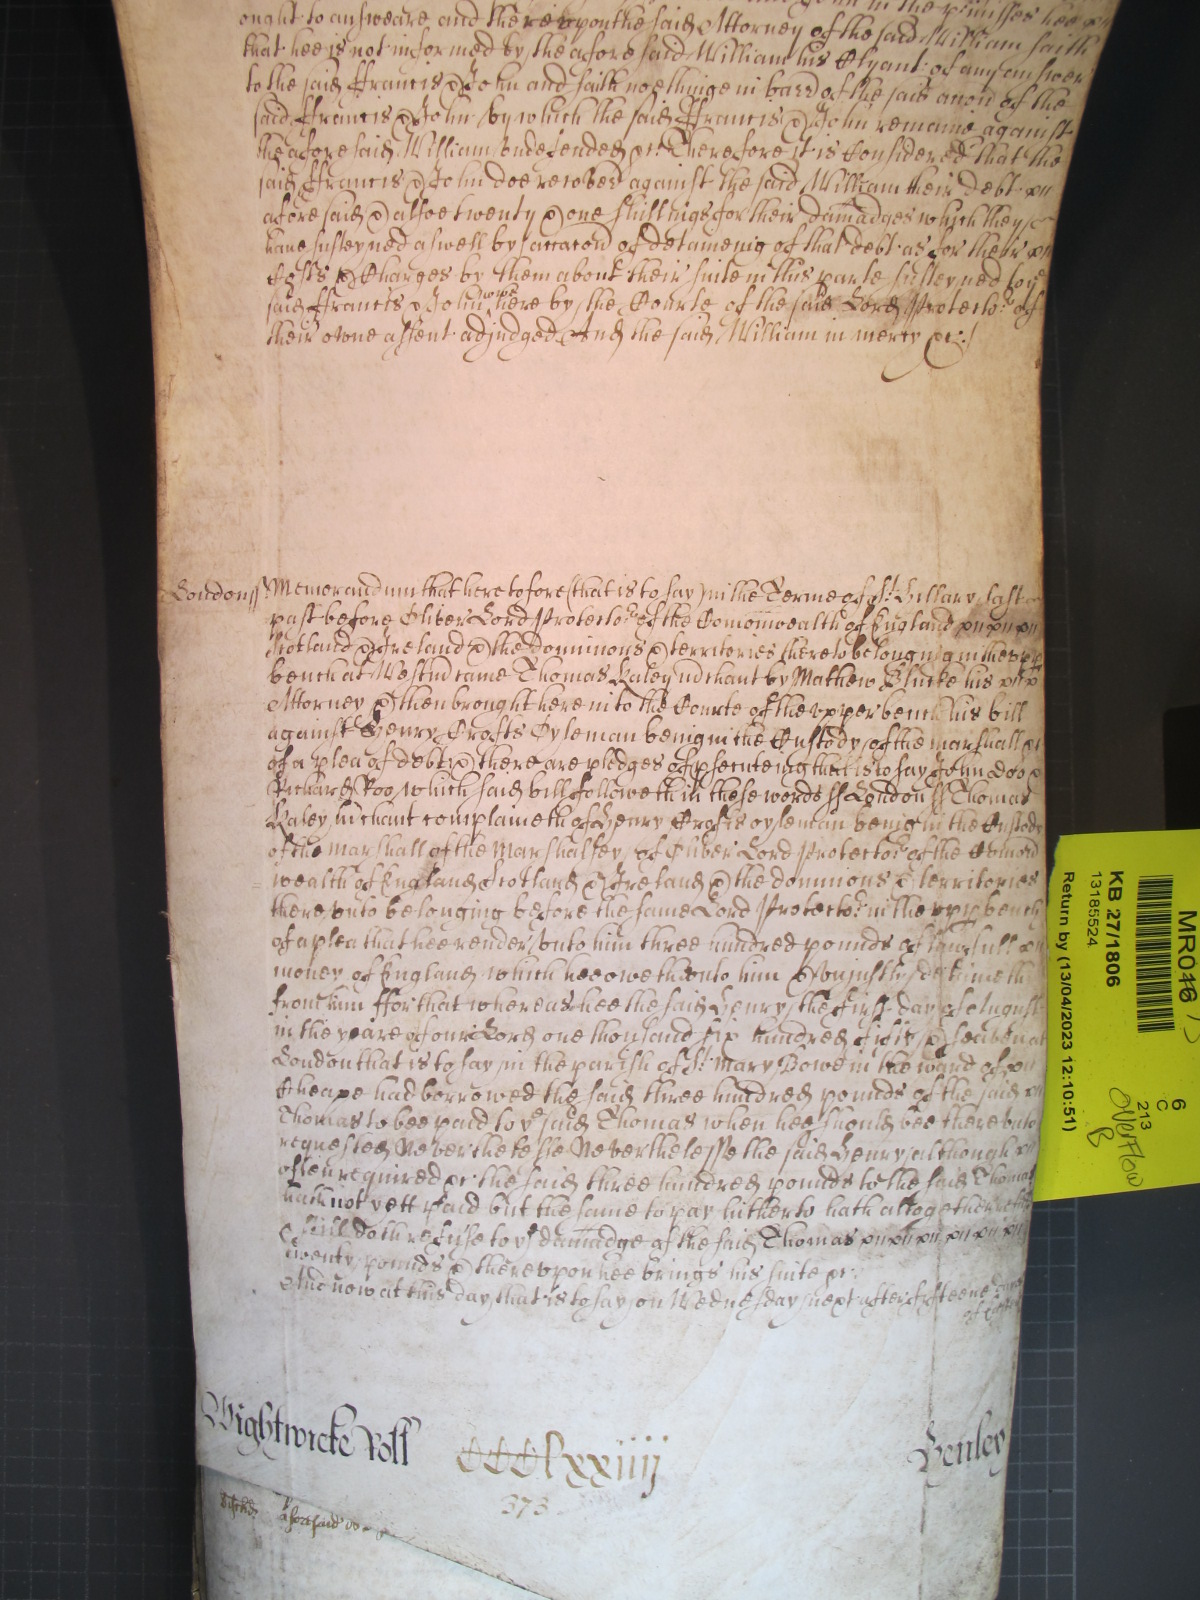 ought to answeare and therevpon the said Attorney of the said William saith
that hee is not informed by the afore said William his Clyant of any answer
to the said Ffrancis & John and saith noethinge in barr of the said accon of the
said Ffrancis & John by which the said Ffrancis & John remaine against
the afore said William vndefended &c Therefore it is Considered that the
said Ffrancis & John doe recover against the said William their debt
afore said & alsoe twenty & one shillings for their damadges which they
have susteyned aswell by occacon of deteineing of that debt as for their
Costs & Charges by them about their suite in this parte susteyned to ye
said Ffrancis & John here by the Courte of the said Lord Protector of
their owne assent adjudged And the said William in mercy &c
London ss Memorandum that heretofore (that is to say) in the Terme of St Hillary last
past before Oliver Lord Protector of the Comonwealth of England
Scotland & Ireland & the dominions & territories thereto belonging in the vpp
bench at Westm came Thomas Raley mchant by Mathew Blucke his
Attorney & then brought here into the Courte of the vpper bench his bill
against Henry Crofts Oyleman being in the Custody of the marshall &c
of a plea of debt & there are pledges of psecuteing that is to say John Doo &
Richard Roo which said bill followeth in these words ss London ss Thomas
Raley mchant complaineth of Henry Crofts oyleman being in the Custody
of the marshall of the Marshalsey of Oliver Lord Protector of the Comon
wealth of England Scotland & Ireland & the dominions & territories
therevnto belonging before the same Lord Protector in the vpp bench
of a plea that hee render vnto him three hundred pounds of lawfull
money of England which hee oweth vnto him & vnjustly deteineth
from him ffor that whereas hee the said Henry the first day of August
in the yeare of our Lord one thousand six hundred fifty & seaven at
London that is to say in the parish of St Mary Bowe in the ward of
Cheape had borrowed the said three hundred pounds of the said
Thomas to bee paid to ye said Thomas when hee should bee therevnto
requested Neverthelesse Neverthelesse the said Henry although
often required &c the said three hundred pounds to the said Thomas
hath not yett paid but the same to pay hitherto hath altogether
& still doth refuse to ye damadge of the said Thomas
twenty pounds & therevpon hee brings his suite &c
And now at this day that is to say on Wednesday next after fifteene
Wightwicke Roll CCClxxiiij Henley
373
aforesaid
MR046
6
C
213
KB 27/1806
13185524
Return by (13/04/2023 12:10:51)
Overflow
B